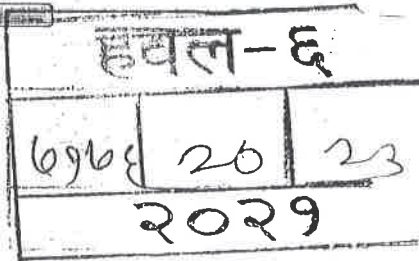 हवल-६
७१७६ 20 23
२०२१